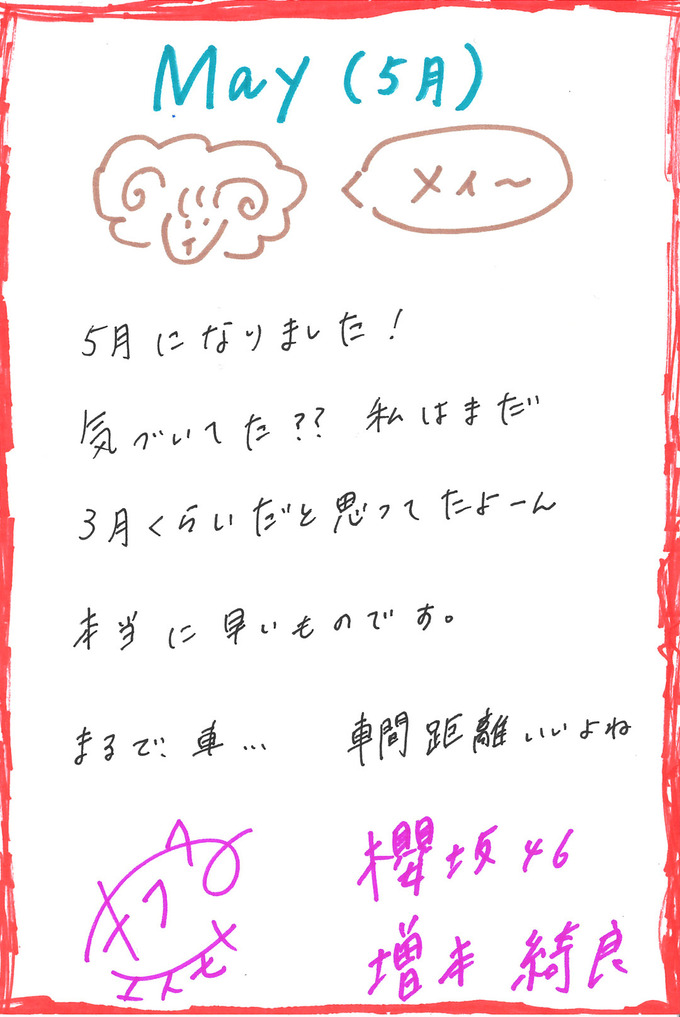 May (5月)
メィ〜
5月になりました!
気づいてた?? 私はまだ
3月くらいだと思ってたよーん
本当に早いものです。
まるで、車… 車間距離いいよね
櫻坂46
増本綺良